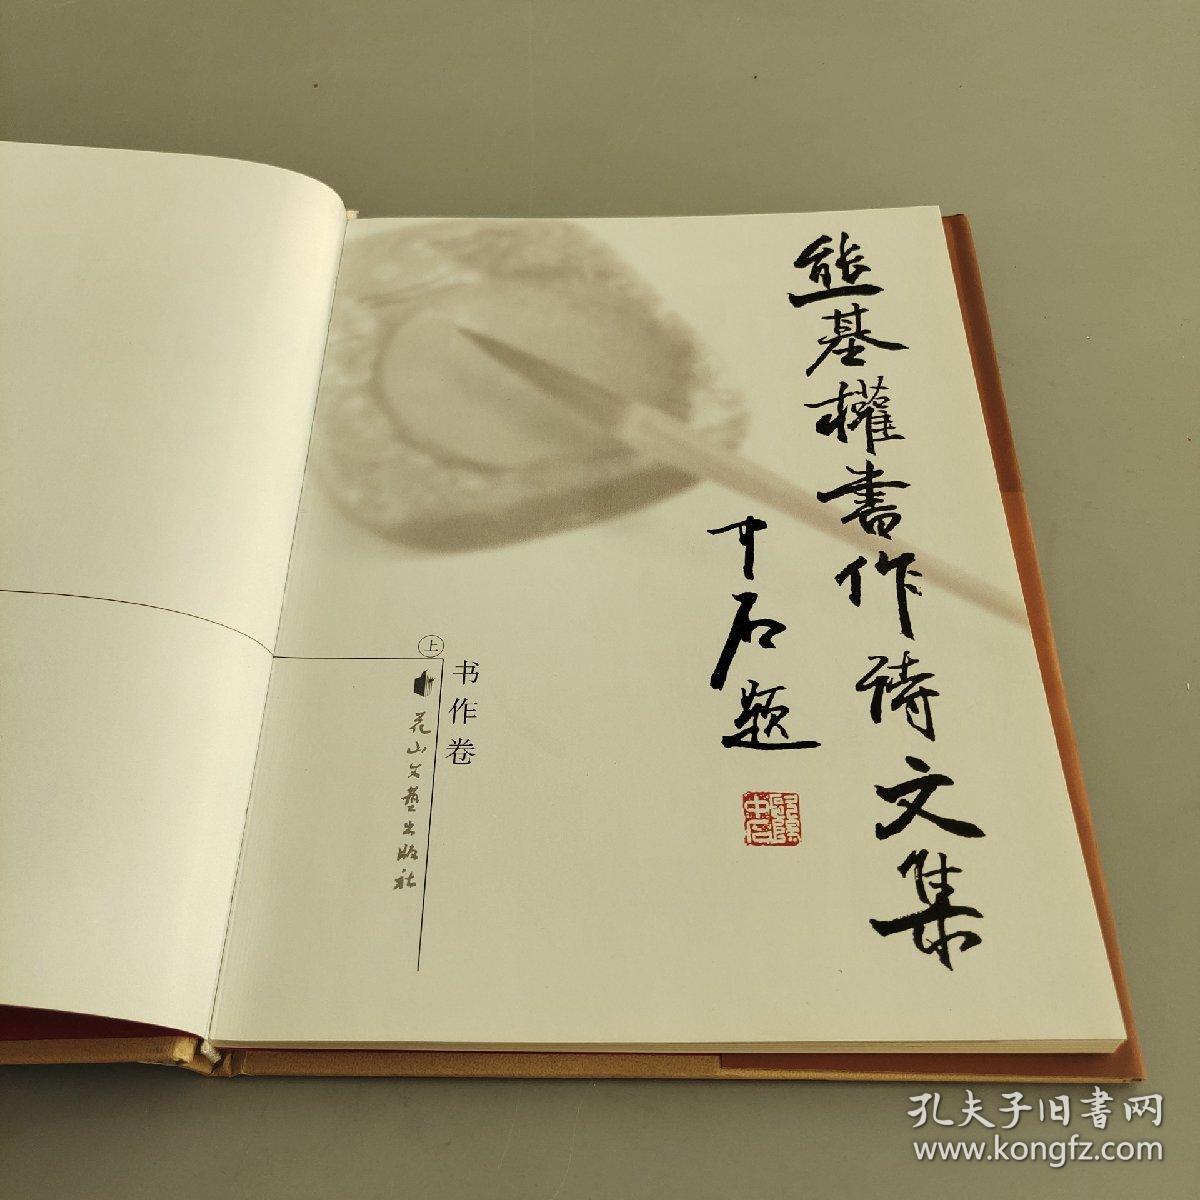 熊基權書作詩文集
中石题
中石
上
书作卷
花山文艺出版社
孔夫子旧書网
www.kongfz.com